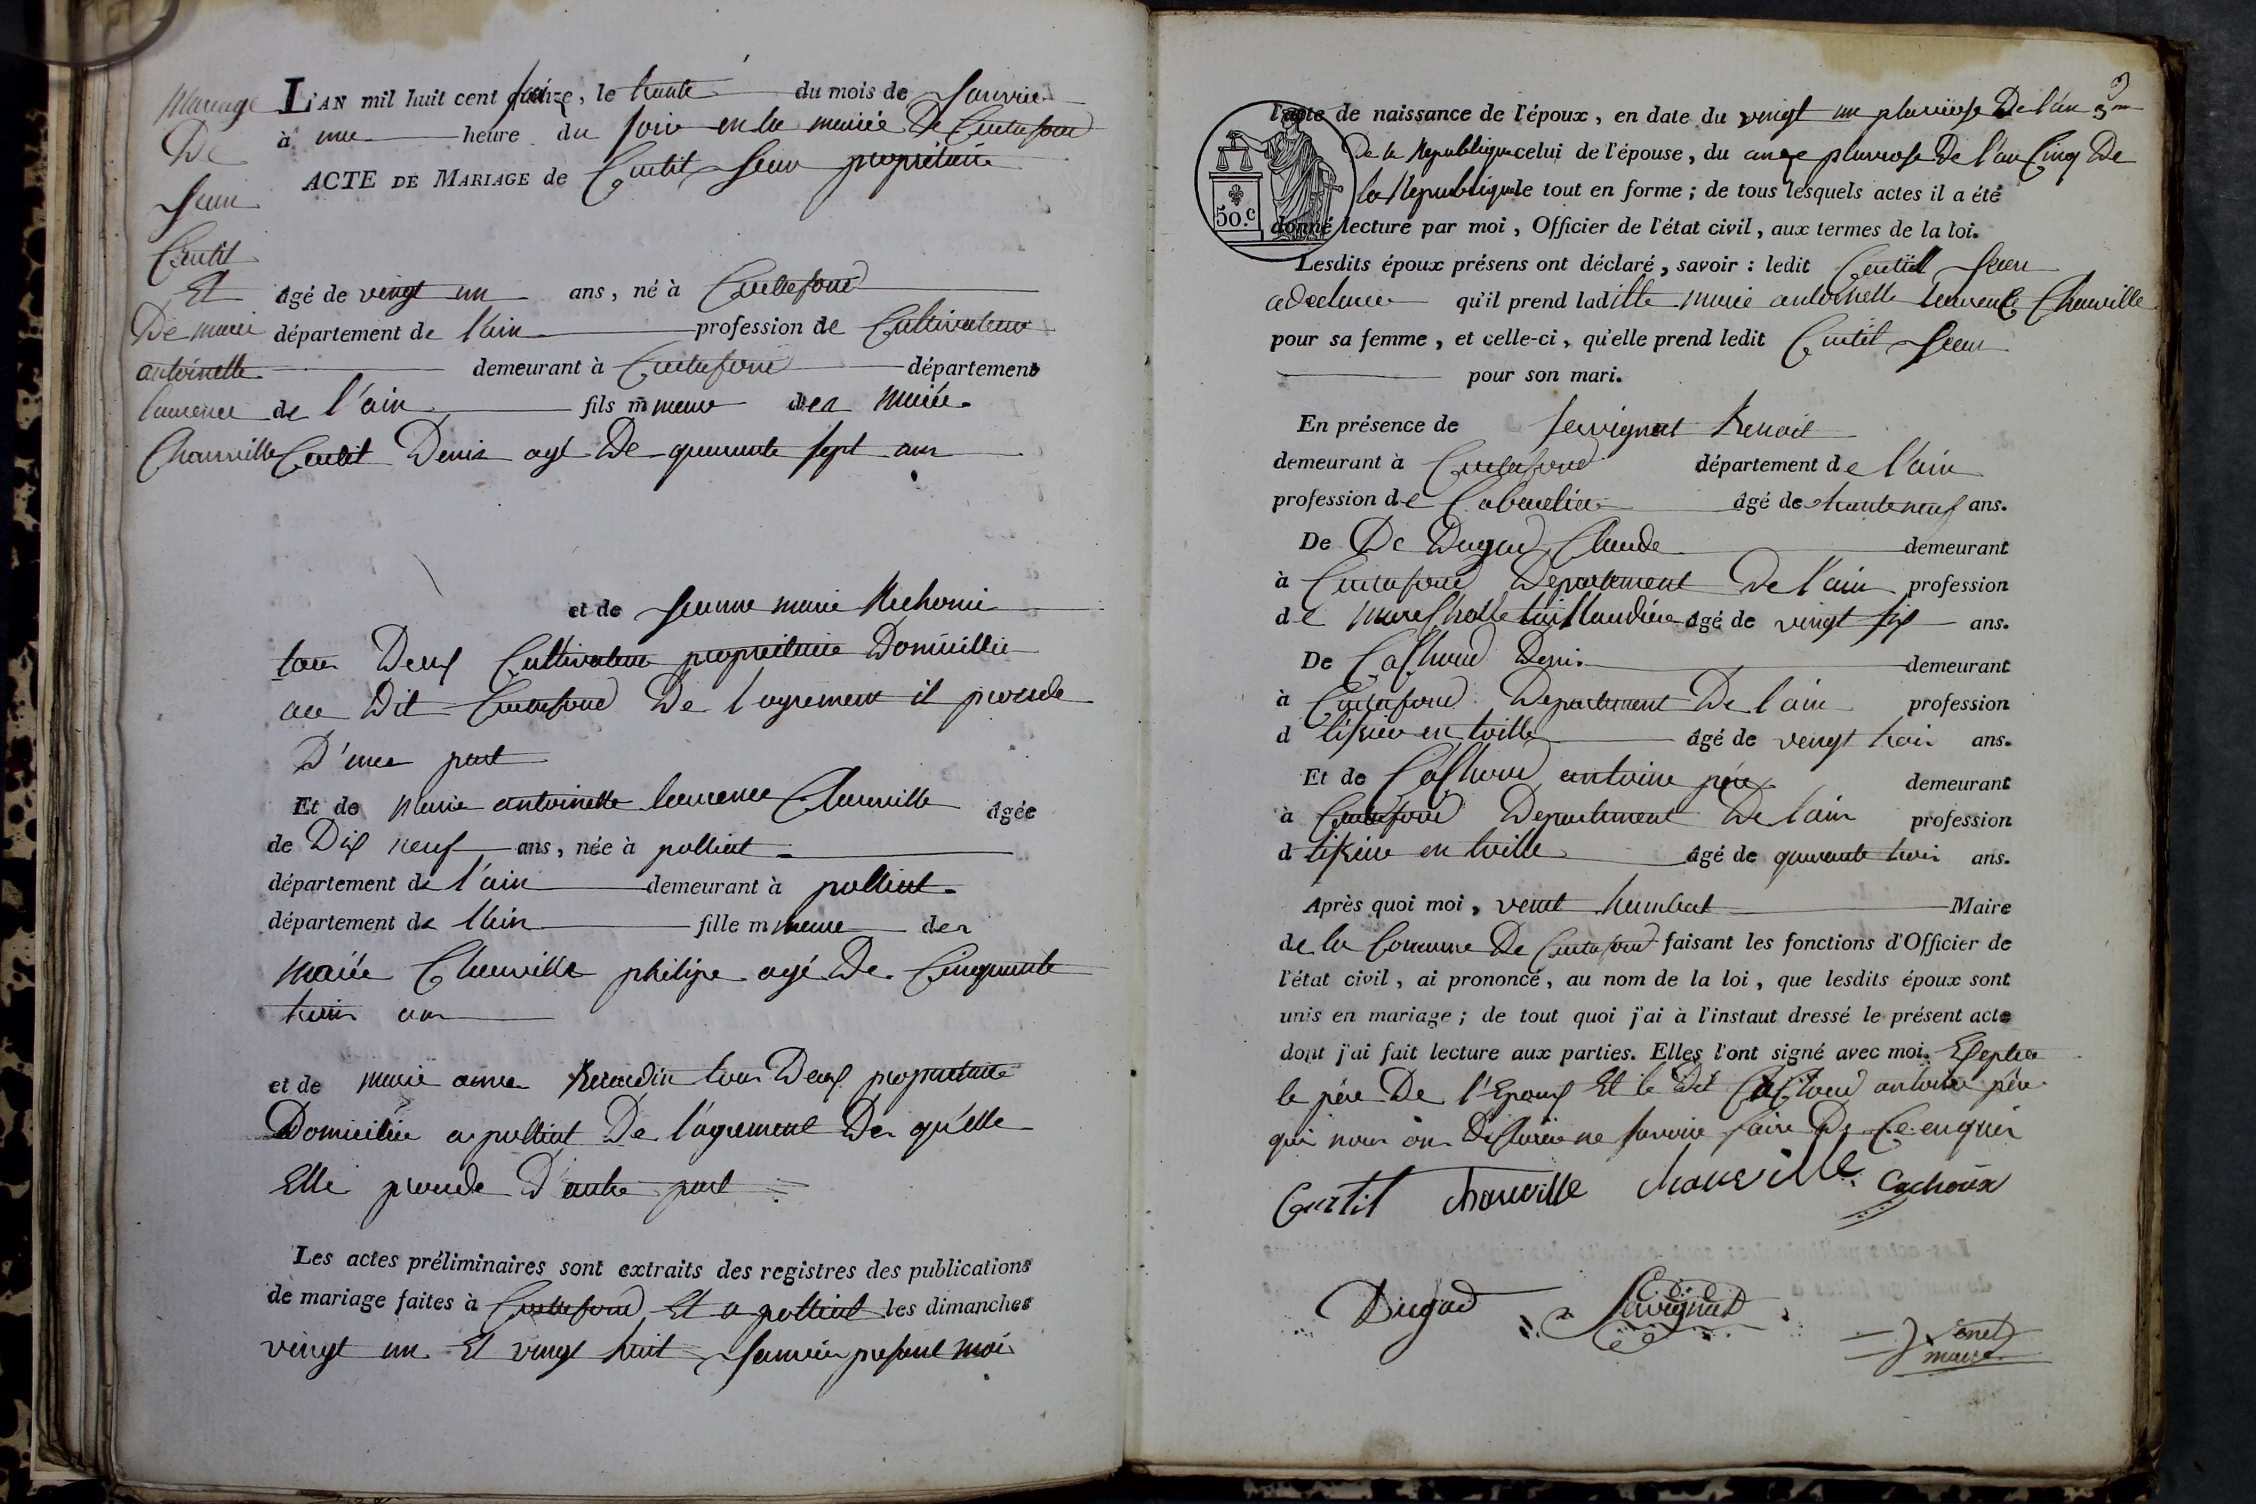 Mariage
De
Jean
Curtil
Et
De marie
antoinette
laurence
Chauville
L'AN mil huit cent seize, le trente du mois de Janvier
à une heure du soir en la mairie De Curtafond
ACTE DE MARIAGE de Curtil Jean propriétaire
âgé de vingt un ans, né à Curtafond
département de l'ain profession de Cultivateur
demeurant à Curtafond département
de l'ain fils mineur des mariés
Curtil Denis agé De quarante sept ans
et de Jeanne marie
tous Deux Cultivateur propriétaire Domicilliés
au Dit Curtafond De l'agrement
D'une part
Et de Marie antoinette laurence Chauville âgée
de Dix neuf ans, née à polliat
département de l'ain demeurant à polliat
département de l'ain fille mineure des
Mariés Chauville philipe agé De Cinquante
trois ans
et de marie anne tous Deux propriétaire
Domiciliés a polliat De l'agrement Des qu'elle
Elle procede D'autre part
Les actes préliminaires sont extraits des registres des publications
de mariage faites à Curtafond Et a polliat les dimanches
vingt un Et vingt huit Janvier présent mois
l'acte de naissance de l'époux, en date du vingt un pluviose De l'an 3me
De la Republique celui de l'épouse, du onze pluviose De l'an Cinq De
la Republique le tout en forme ; de tous lesquels actes il a été
50.c
donné lecture par moi, Officier de l'état civil, aux termes de la loi.
Lesdits époux présens ont déclaré, savoir : ledit Curtil Jean
a declarer qu'il prend laditte marie antoinette laurence Chauville
pour sa femme, et celle-ci, qu'elle prend ledit Curtil Jean
pour son mari.
En présence de Servignat Benoit
demeurant à Curtafond département de l'ain
profession de Cabaretier âgé de trente neuf ans.
De De Dugad Claude demeurant
à Curtafond Departement De l'ain profession
de Marechalle taillandier âgé de vingt six ans.
De Cachoud Deni demeurant
à Curtafond Departement De l'ain profession
d tisieur en toille âgé de vingt trois ans.
Et de Cachoud antoine père demeurant
à Curtafond Departement De l'ain profession
d tisieur en toille âgé de quarante trois ans.
Après quoi moi, venet humbert Maire
de la Comune De Curtafond faisant les fonctions d'Officier de
l'état civil, ai prononcé, au nom de la loi, que lesdits époux sont
unis en mariage ; de tout quoi j'ai à l'instaut dressé le présent acte
dont j'ai fait lecture aux parties. Elles l'ont signé avec moi. Excepter
le père De l'Epoux Et le Dit Cachoud antoine père
qui nous ons Déclarée ne savoir faire De Ce enquis
Curtil Chauville chauville Cachoux
Dugad Servignat
venet
maire